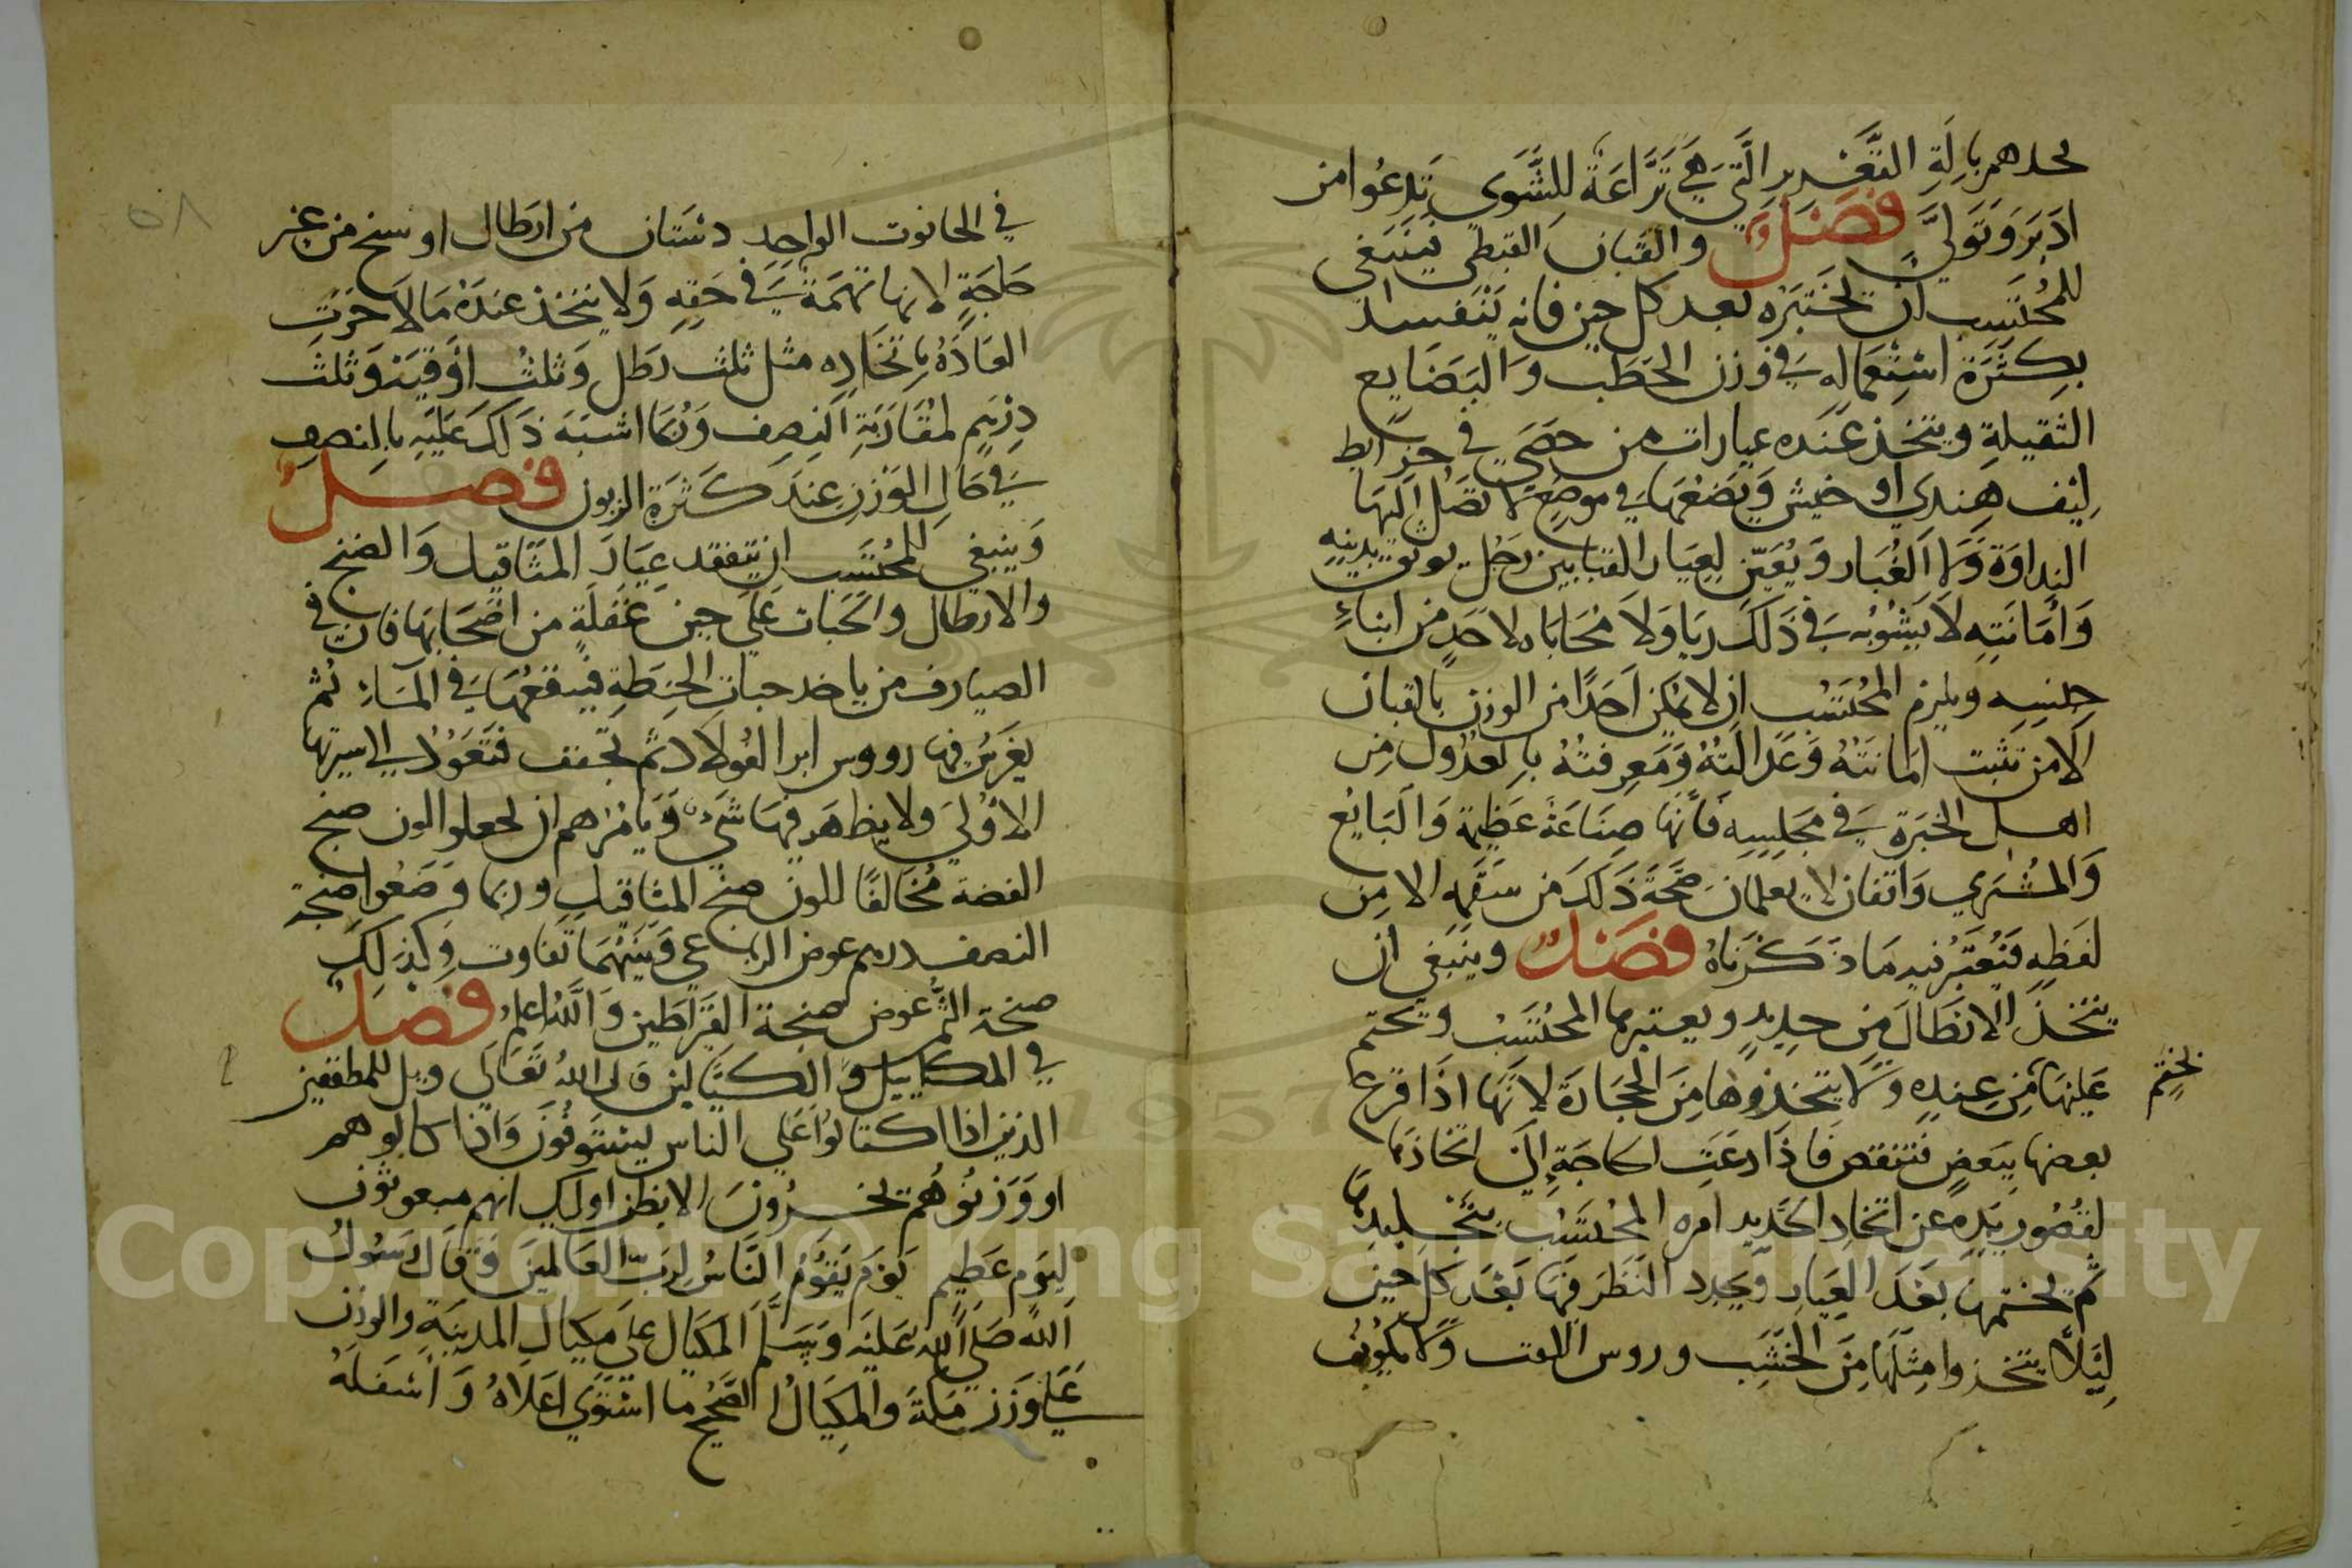 يحدهم بالة التعزير التي هي نزاعة للشوى تدعوا من
ادبر وتولى فصل والقبان القبطي فينبغي
للمحتسب ان يختبره بعد كل حين فانه يتفسد
بكثرة استعماله في وزن الحطب والبضايع
الثقيلة ويتخذ عنده عيارات من حصى في خرايط
ليف هندي او خيش ويضعها في موضع لا تصل اليها
النداوة ولا الغبار ويعين لعيار القبابين رجل يوثق بدينه
وامانته لا يشوبه في ذلك ريا ولا محاباه لاحد من ابناء
جنسه ويلزم المحتسب ان لا يمكن احدا من الوزن بالقبان
الا من تثبت امانته وعدالته ومعرفته بالعدول من
اهل الخبرة في مجلسه فانها صناعة عظيمة والبايع
والمشتري واقفان لا يعلمان صحة ذلك من سقمه الا من
لفظه فيعتبر فيه ما ذكرناه فصل وينبغي ان
يتخذ الارطال من حديد ويعتبرها المحتسب ويختم
عليها من عنده ولا يتخذوها من الحجارة لانها اذا قرع
بختم
بعضها ببعض فتنقص فاذا دعت الحاجة الى اتخاذها
لقصور يده عن اتخاد الحديد امره المحتسب بتجليدها
ثم يختمها بعد العيار ويجدد النظر فيها بعد كل حين
ليلا يتخذوا مثلها من الخشب وروس اللفت ولا يكون
٥٨
في الحانوت الواحد دستان من ارطال او سنج من غير
حاجة لانها تهمة في حقه ولا يتخذ عنده ما لا جرت
العادة باتخاده مثل ثلث رطل وثلث اوقية وثلث
درهم لمقاربة النصف وربما اشتبه ذلك عليه بالنصف
في حال الوزن عند كثرة الزبون فصل
وينبغي للمحتسب ان يتفقد عيار المثاقيل والصنج
والارطال والحبات على حين غفلة من اصحابها فان في
الصيارف من ياخد حبات الحنطة فينقعها في الماء ثم
يغرس فيها رووس ابر الفولاد ثم تجفف فتعود الى سيرتها
الاولى ولا يظهر فيها شيء ويامرهم ان يجعلوا الون صنج
الفضة مخالفا للون صنج المثاقيل وربما وضعوا صنجة
النصف درهم عوض الرباعي وبينهما تفاوت وكذلك
صنجة الثمن عوض صنجة القيراطين والله اعلم فصل
في المكاييل والكيالين قال الله تعالى ويل للمطففين
الذين اذا اكتالوا على الناس يستوفون واذا كالوهم
او وزنوهم يخسرون الا يظن اوليك انهم مبعوثون
ليوم عظيم يوم يقوم الناس لرب العالمين وقال رسول
الله صلى الله عليه وسلم المكيال على مكيال المدينة والوزن
على وزن مكة والمكيال الصحيح ما استوى اعلاه واسفله
Copyright © King Saud University
1957